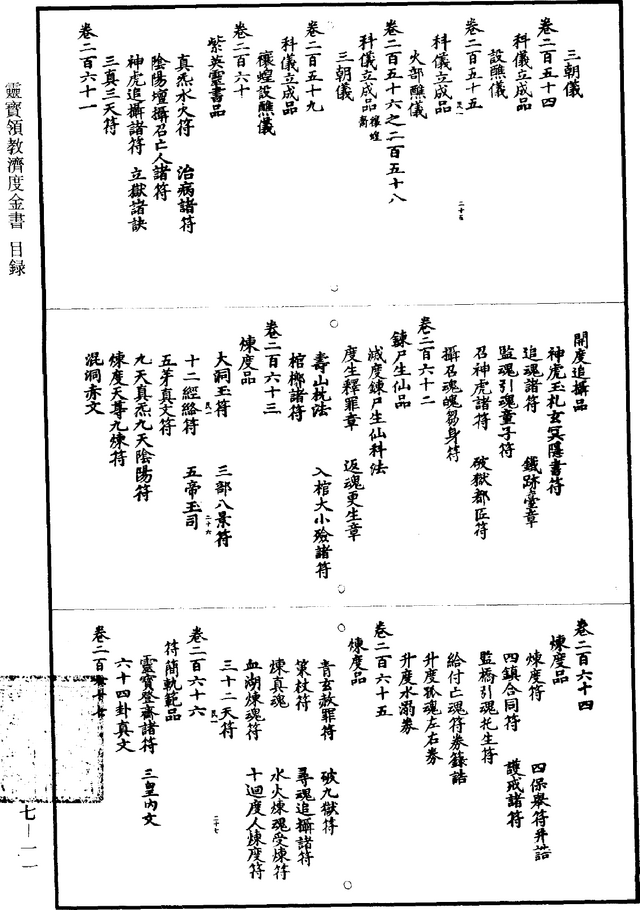 靈寶領教濟度金書 目録
三朝儀
卷二百五十四
科儀立成品
設醮儀
卷二百五十五
科儀立成品
火部醮儀
卷二百五十六之二百五十八
科儀立成品禳蝗
三朝儀
卷二百五十九
科儀立成品
禳蝗設醮儀
卷二百六十
紫英靈書品
真炁水火符 治病諸符
陰陽壇攝召亡人諸符
神虎追攝諸符 立獄諸訣
三真三天符
卷二百六十一
二十五
開度追攝品
神虎玉札玄冥隱書符
追魂諸符 鐵跡臺章
監魂引魂童子符
召神虎諸符 破獄都匠符
攝召魂魄芻身符
卷二百六十二
鍊尸生仙品
滅度鍊尸生仙科法
度生釋罪章 返魂更生章
壽山枕法 入棺大小殮諸符
棺槨諸符
卷二百六十三
煉度品
大洞玉符 三部八景符
十二經絡符 五帝玉司
五芽真文符
九天真炁九天陰陽符
煉度天尊九煉符
混洞赤文
二十六
卷二百六十四
煉度品
煉度符 四保舉符并誥
四鎮合同符 護戒諸符
監橋引魂托生符
給付亡魂符券籙誥
升度孤魂左右券
升度水溺券
卷二百六十五
煉度品
青玄赦罪符 破九獄符
策杖符 尋魂追攝諸符
煉真魂 水火煉魂受煉符
血湖煉魂符 十迴度人煉度符
三十二天符
卷二百六十六
符簡軌範品
靈寶登齋諸符 三皇内文
六十四卦真文
卷二百
二十七
七—一一